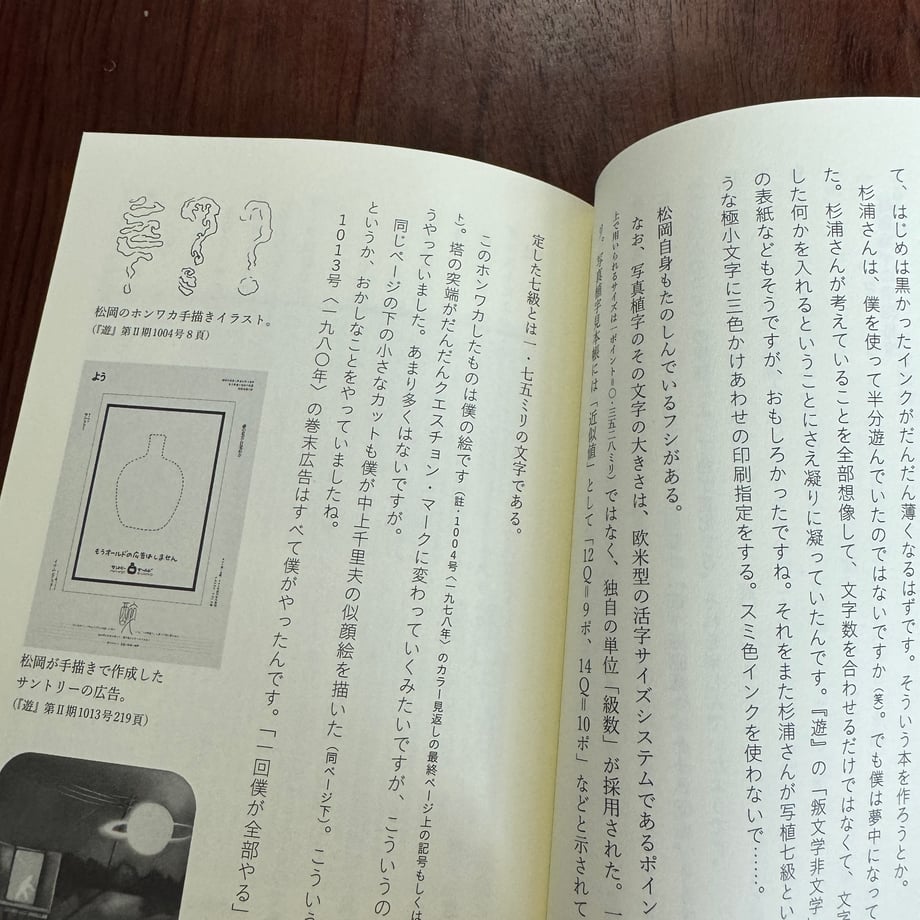 て、はじめは黒かったインクがだんだん薄くなるはずです。そういう本を作ろうとか。
杉浦さんは、僕を使って半分遊んでいたのではないですか（笑）。でも僕は夢中になって
た。杉浦さんが考えていることを全部想像して、文字数を合わせるだけではなくて、文字
した何かを入れるということにさえ凝りに凝っていたんです。『遊』の「叛文学非文学」
の表紙などもそうですが、おもしろかったですね。それをまた杉浦さんが写植七級とい
うな極小文字に三色かけあわせの印刷指定をする。スミ色インクを使わないで……。
松岡自身もたのしんでいるフシがある。
なお、写真植字のその文字の大きさは、欧米型の活字サイズシステムであるポイン
上で用いられるサイズは一ポイント＝〇・三五二八ミリ）ではなく、独自の単位「級数」が採用された。一
り、写真植字見本帳には「近似値」として「12Q＝9ポ、14Q＝10ポ」などと示されて
定した七級とは一・七五ミリの文字である。
このホンワカしたものは僕の絵です（註・1004号〈一九七八年〉のカラー見返しの最終ページ上の記号もしくは
ト）。塔の突端がだんだんクエスチョン・マークに変わっていくみたいですが、こういうの
うやっていました。あまり多くはないですが。
同じページの下の小さなカットも僕が中上千里夫の似顔絵を描いた（同ページ下）。こういう
というか、おかしなことをやっていましたね。
1013号〈一九八〇年〉の巻末広告はすべて僕がやったんです。「一回僕が全部やる」
松岡のホンワカ手描きイラスト。
（『遊』第Ⅱ期1004号8頁）
よう
もうオールドの広告はしません
サントリー
オールド
松岡が手描きで作成した
サントリーの広告。
（『遊』第Ⅱ期1013号219頁）